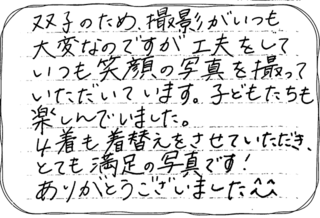 双子のため、撮影がいつも
大変なのですが工夫をして
いつも笑顔の写真を撮って
いただいています。子どもたちも
楽しんでいました。
4着も着替えをさせていただき、
とても満足の写真です!
ありがとうございました^^